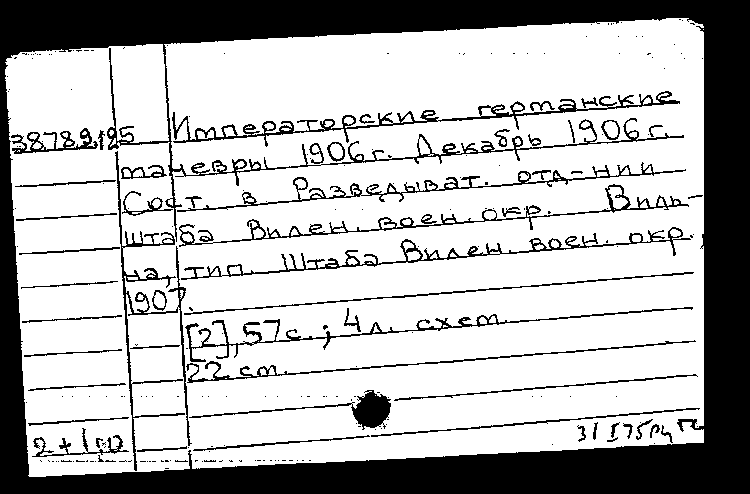 38.78.9.125 Императорские германские
маневры 1906г. Декабрь 1906г.
Сост. в Разведыват. отд-нии
штаба Вилен. воен. окр. Виль-
на, тип. Штаба Вилен. воен. окр.,
1907.
[2], 57с.; 4л. схем.
22 см.
31 I 75